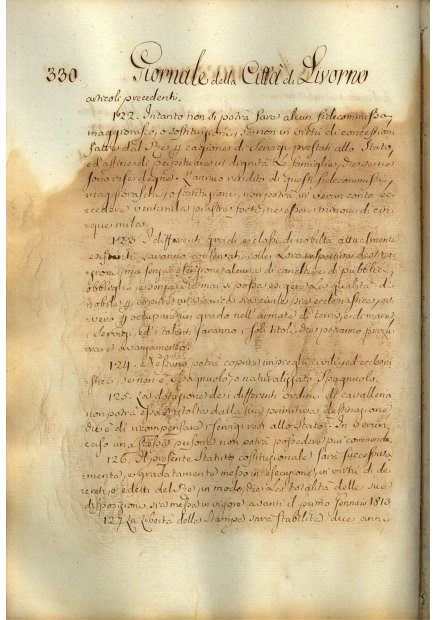 330. Giornale della Città di Livorno
articoli precedenti.
122. Intanto non si potrà fare alcun fidecommisso,
maggiorasco, o sostituzione, se non in virtù di concessioni
fatte dal Rè, per cagione di servizj prestati allo Stato,
ed affine di perpetuare in dignità le famiglie, che se ne
sono rese degne. L'annuo reddito di questi fidecommissi,
maggioraschi, o sostituzioni, non potrà in verun conto ec-
cedere ventimila piastre forti, ne essere minore di cin-
que mila.
123. I differenti gradi e classi di nobiltà attualmente
esistenti saranno conservati colle loro respettive distin-
zioni, ma senza esenzione alcuna di cariche, e pubbliche
obbligazioni, e senza che mai si possa esigere la qualità di
nobile per coprire cariche sia civili, sia ecclesiastiche, ov-
vero per occupare un grado nell'armate di terra, e di mare.
I Servizj, ed i talenti saranno i soli titoli che potranno procu-
rare avanzamento.
124. Nessuno potrà coprire impieghi civili, ed ecclesia-
stici, se non è Spagnuolo, o naturalizzato Spagnuolo.
125. La dotazione dei differenti ordini di cavalleria
non potrà essere tolta dalla sua primitiva destinazione
che è di ricompensare i servizj resi allo Stato. In verun
caso un'istessa persona non potrà possedere più commende.
126. Il presente Statuto costituzionale sarà successiva-
mente, e gradatamente messo in esecuzione, in virtù di de-
creti, e editti del Rè, in modo, che la totalità delle sue
disposizioni sia messa in vigore avanti il primo Gennaio 1813
127. La libertà della Stampa sarà stabilita due anni